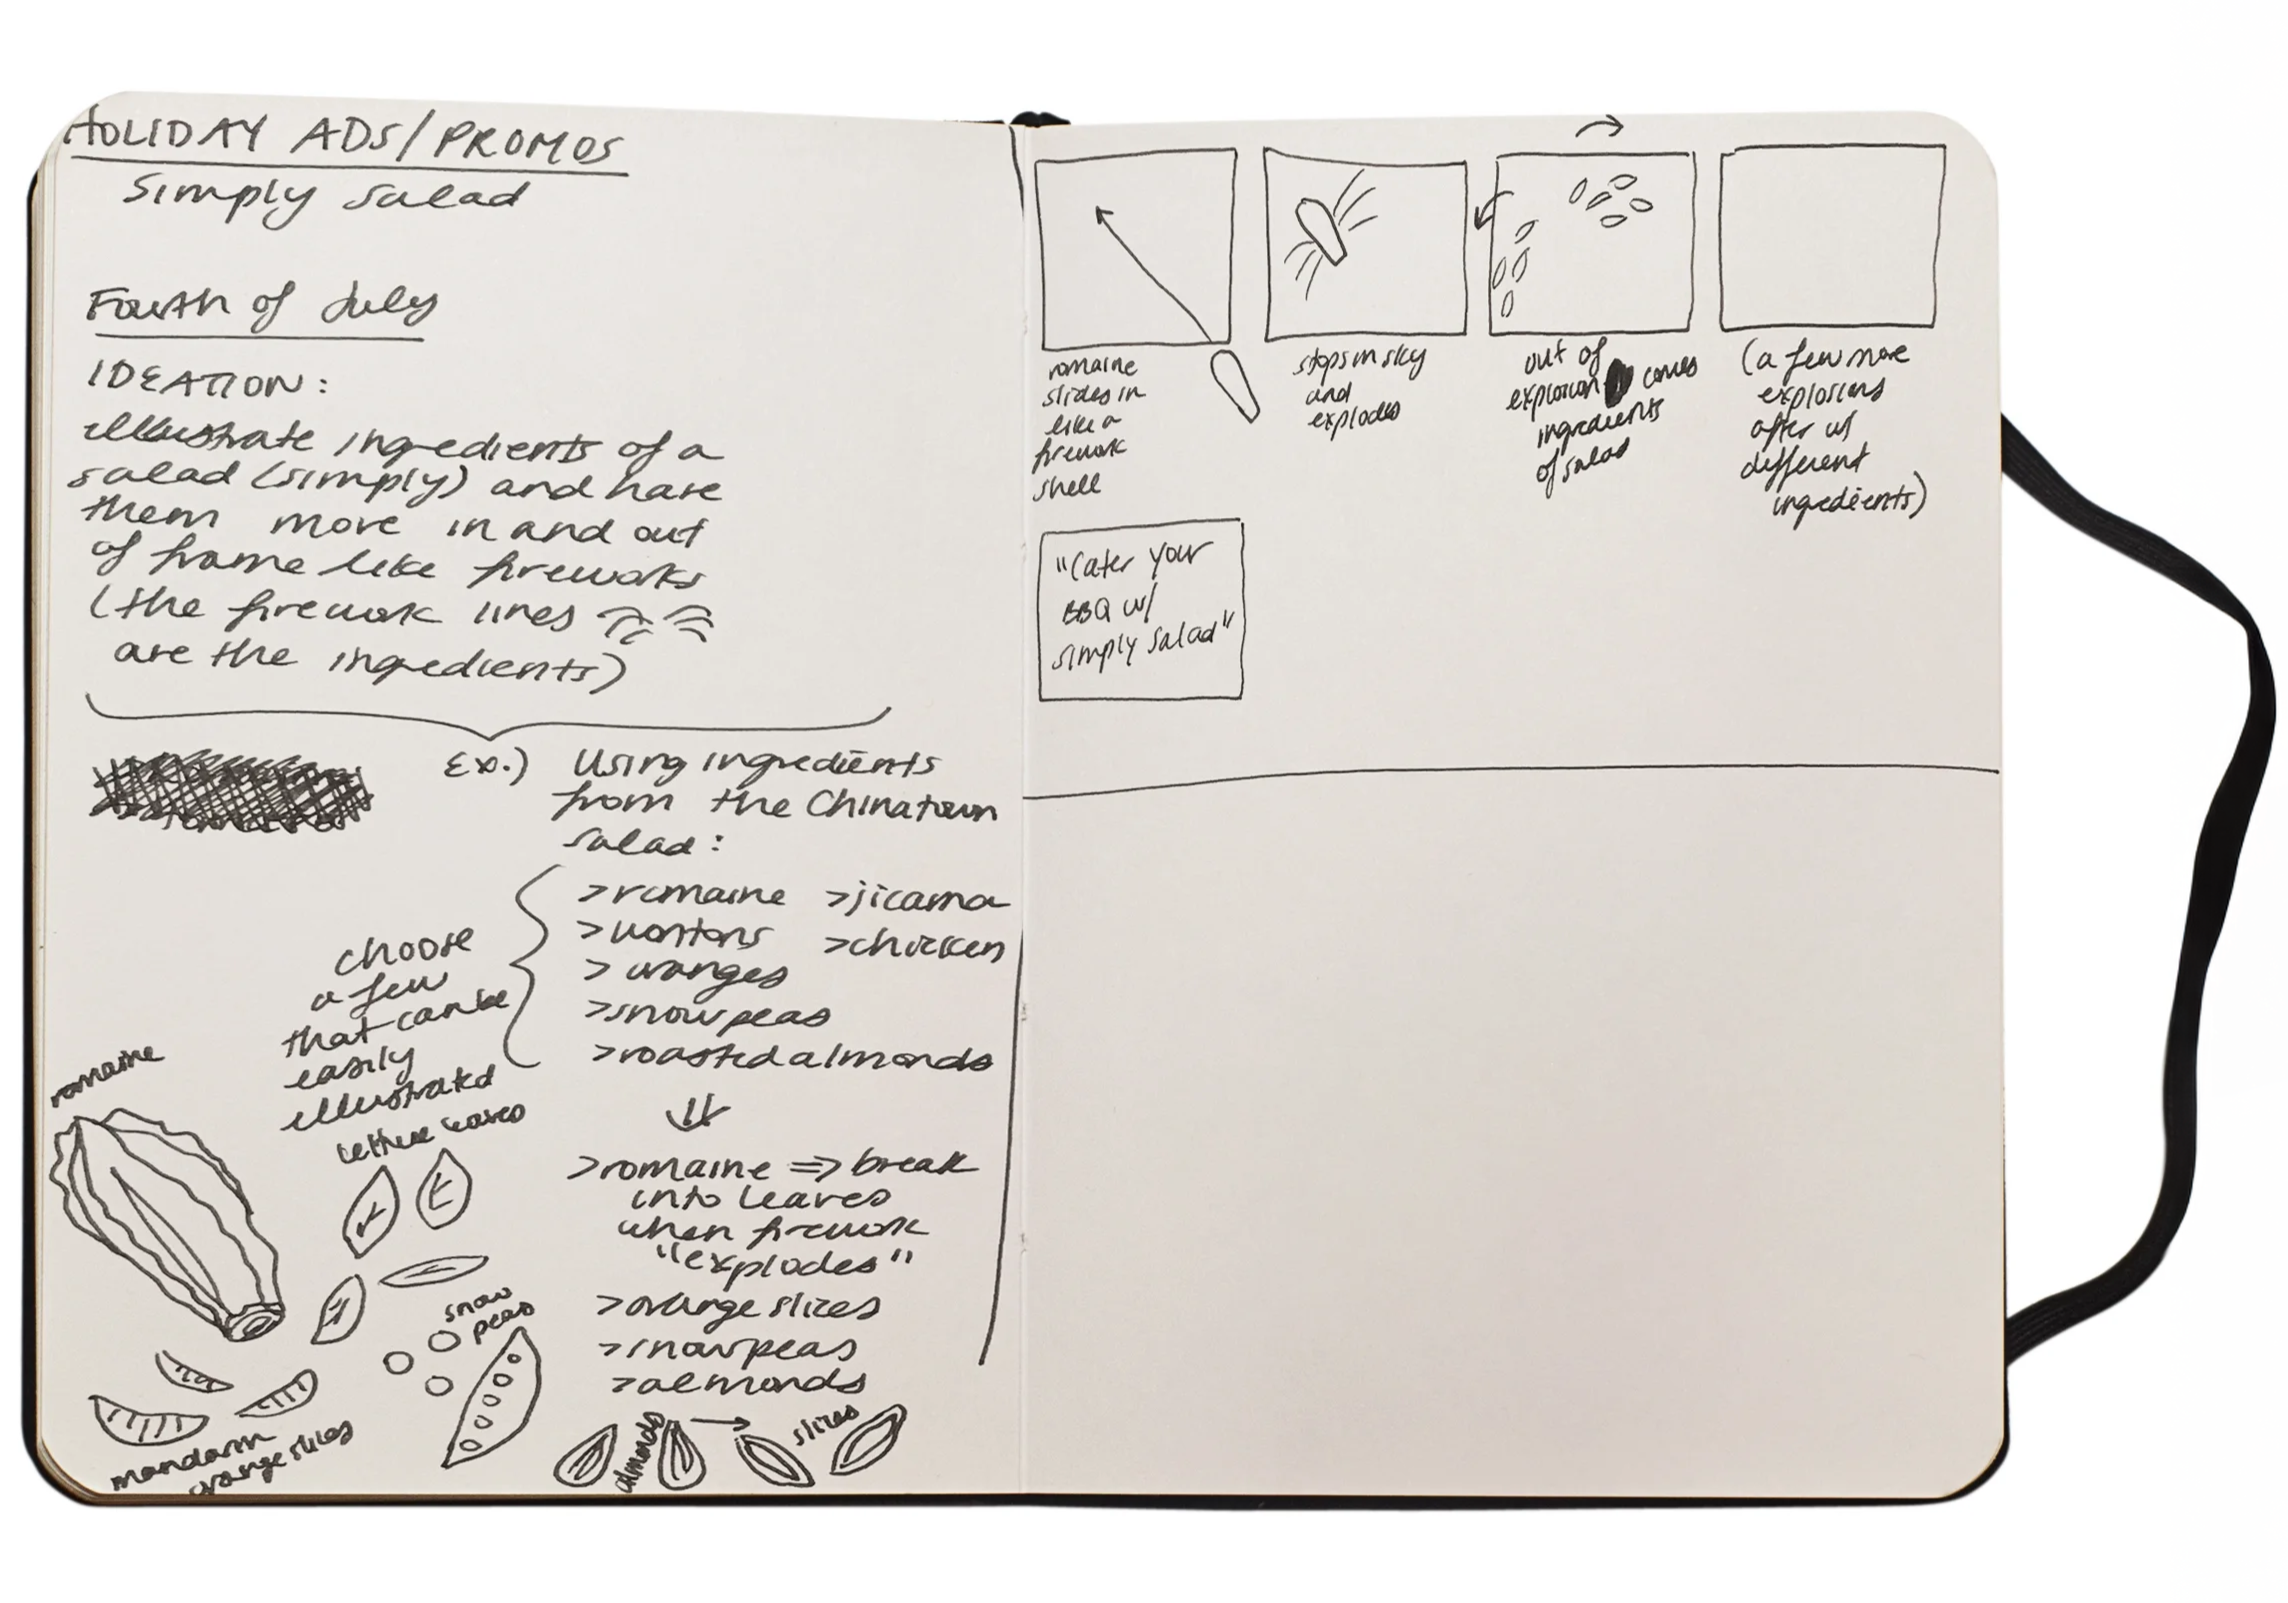 HOLIDAY ADS/PROMOS
Simply Salad
Fourth of July
IDEATION:
illustrate ingredients of a
salad (simply) and have
them move in and out
of frame like fireworks
(the firework lines
are the ingredients)
Ex.) Using ingredients
from the Chinatown
salad:
>romaine >jicama
>wontons >chicken
>oranges
>snow peas
>roasted almonds
choose
a few
that can be
easily
illustrated
>romaine => break
into leaves
when firework
"explodes"
>orange slices
>snow peas
>almonds
romaine
lettuce leaves
snow
peas
mandarin
orange slices
almonds
slices
romaine
slides in
like a
firework
shell
stops in sky
and
explodes
out of
explosion comes
ingredients
of salad
(a few more
explosions
after w/
different
ingredients)
"Cater your
BBQ w/
Simply Salad"